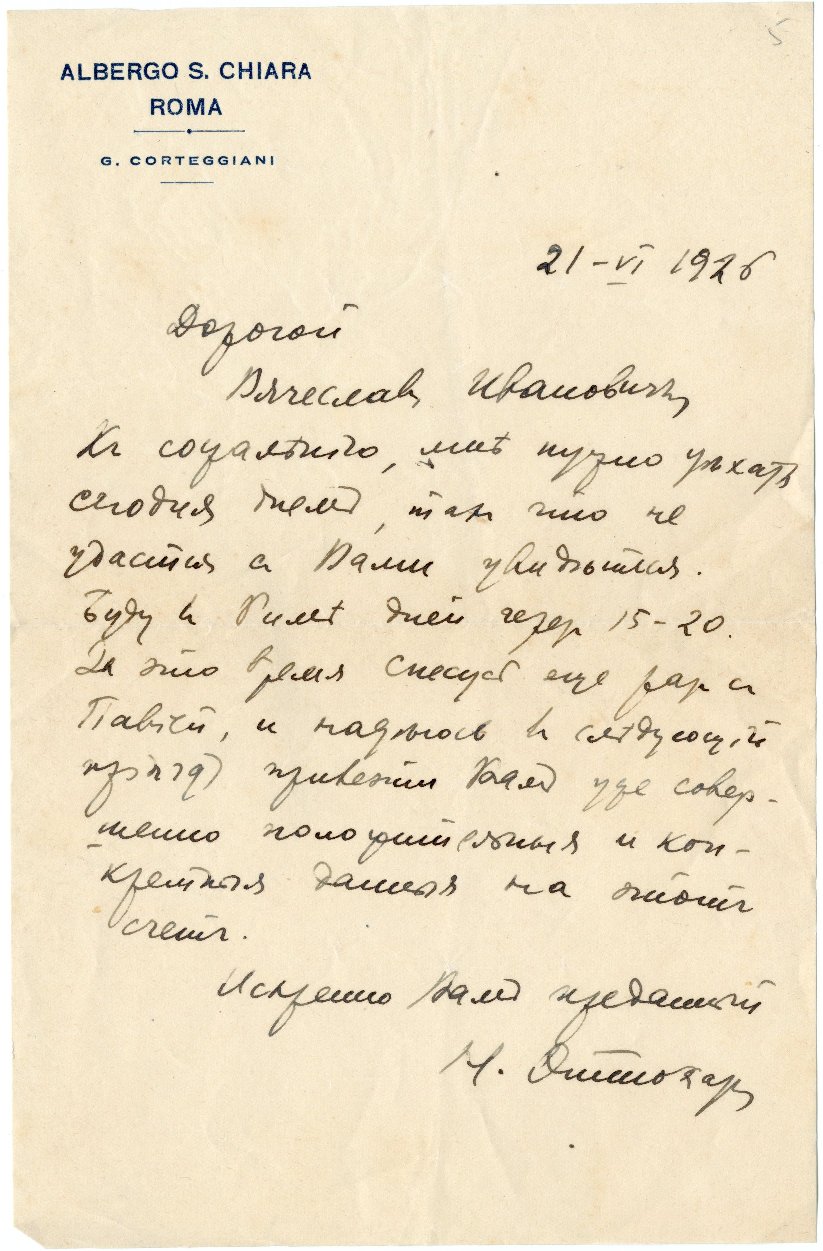 5
ALBERGO S. CHIARA
ROMA
G. CORTEGGIANI
21-VI 1926
Дорогой
Вячеславъ Ивановичъ,
Къ сожалѣнію, мнѣ нужно уѣхать
сегодня днемъ, такъ что не
удастся съ Вами увидѣться.
Буду въ Римѣ дней черезъ 15-20.
За это время спишусь еще разъ съ
Павіей, и надѣюсь въ слѣдующій
пріѣздъ привезти Вамъ уже совер-
шенно положительныя и кон-
кретныя данныя на этотъ
счетъ.
Искренно Вамъ преданный
Н. Оттокаръ